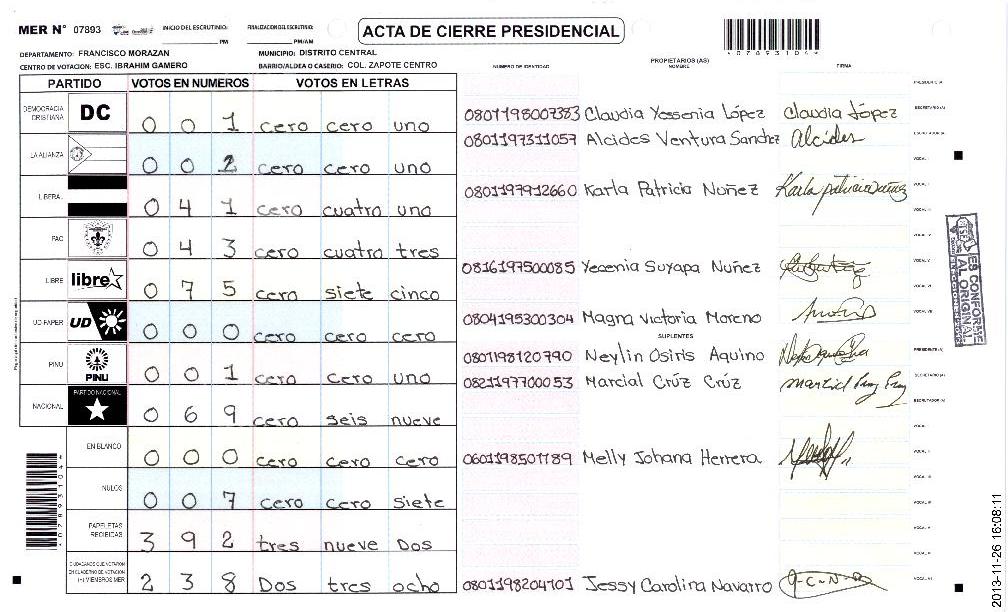 MER N° 07893 INICIO DEL ESCRUTINIO: PM FINALIZACION DEL ESCRUTINIO: PM/AM
ACTA DE CIERRE PRESIDENCIAL
DEPARTAMENTO: FRANCISCO MORAZAN MUNICIPIO: DISTRITO CENTRAL
CENTRO DE VOTACION: ESC. IBRAHIM GAMERO BARRIO/ALDEA O CASERIO: COL. ZAPOTE CENTRO
*07893104*
PARTIDO VOTOS EN NUMEROS VOTOS EN LETRAS
DEMOCRACIA CRISTIANA DC 0 0 1 cero cero uno
LA ALIANZA 0 0 2 cero cero uno
LIBERAL 0 4 1 cero cuatro uno
PAC 0 4 3 cero cuatro tres
LIBRE libre 0 7 5 cero siete cinco
UD-FAPER UD 0 0 0 cero cero cero
PINU PINU 0 0 1 cero cero uno
NACIONAL PARTIDO NACIONAL 0 6 9 cero seis nueve
EN BLANCO 0 0 0 cero cero cero
NULOS 0 0 7 cero cero siete
PAPELETAS RECIBIDAS 3 9 2 tres nueve Dos
CIUDADANOS QUE VOTARON EN CUADERNO DE VOTACION (+) MIEMBROS MER 2 3 8 Dos tres ocho
PROPIETARIOS (AS)
NUMERO DE IDENTIDAD NOMBRE FIRMA
PRESIDENTE (A)
0801198007383 Claudia Yessenia López Claudia López SECRETARIO (A)
0801197311057 Alcides Ventura Sandez Alcides ESCRUTADOR (A)
VOCAL I
0801197912660 Karla Patricia Nuñez Karla patricia nuñez
0816197500085 Yecenia Suyapa Nuñez
0804195300304 Magna Victoria Moreno
SUPLENTES
0801198120790 Neylin Osiris Aquino PRESIDENTE (A)
0821197700053 Marcial Crúz Crúz SECRETARIO (A)
ESCRUTADOR (A)
0601198501789 Melly Johana Herrera
0801198204701 Jessy Carolina Navarro J-C-N-
ES CONFORME AL ORIGINAL
2013-11-26 16:08:11